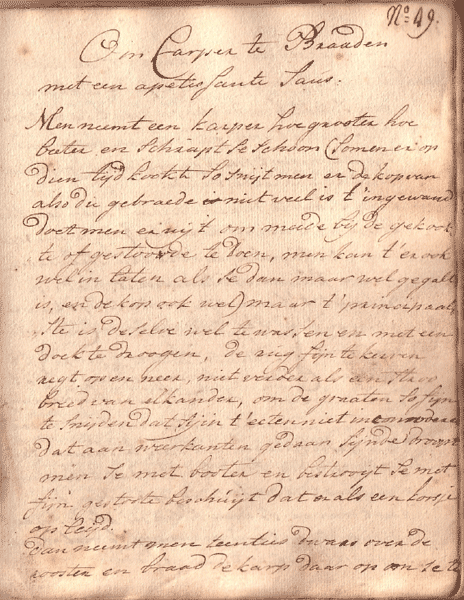 No: 49.
Om Carper te Braaden
met een apetissante Saus.
Men neemt een karper hoe grooter hoe
beeter en schrapt se schoon (Somen er op
dien tijd kookt So snijt men er de kop van
also die gebraede niet veel is t'ingewand
doet men er uijt om meede bij de gekook-
te of gestoofde te doen, men kan t'er ook
wel in laten als se dan maar wel gegalt
is, en de kop ook wel) maar t'principaal-
ste is deselve wel te wassen en met een
doek te droogen, de rug fijn te kerven
regt op en neer, niet verder als een stroo
breed van elkander, om de graaten so fijn
te snijden dat sij in t'eeten niet incomodere
dat aan weerkanten gedaan sijnde droopt
men se met booter en bestrooijt se met
fijn gestoote beschuijt dat er als een korsje
op leijd.
dan neemt men teenties dwars over de
rooster en braad de karp daar op om se te